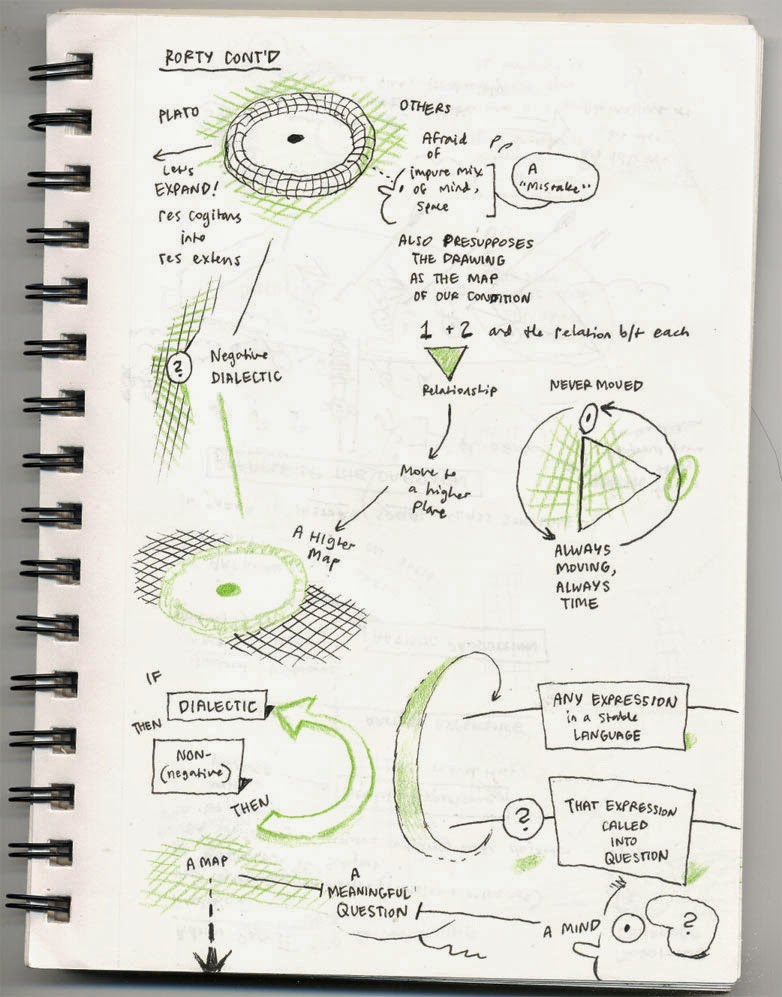 RORTY CONT'D
PLATO
Let's
EXPAND!
res cogitans
into
res extens
OTHERS
Afraid
of
impure mix
of mind,
space
A
"Mistake"
ALSO PRESUPPOSES
THE DRAWING
AS THE MAP
OF OUR CONDITION
1 + 2 and the relation b/t each
Relationship
?
Negative
DIALECTIC
NEVER MOVED
Move to
a higher
Plane
A Higher
Map
ALWAYS
MOVING,
ALWAYS
TIME
IF
DIALECTIC
THEN
NON-
(negative)
THEN
ANY EXPRESSION
in a stable
LANGUAGE
?
THAT EXPRESSION
CALLED
INTO
QUESTION
A MAP
A
MEANINGFUL
QUESTION
A MIND
?